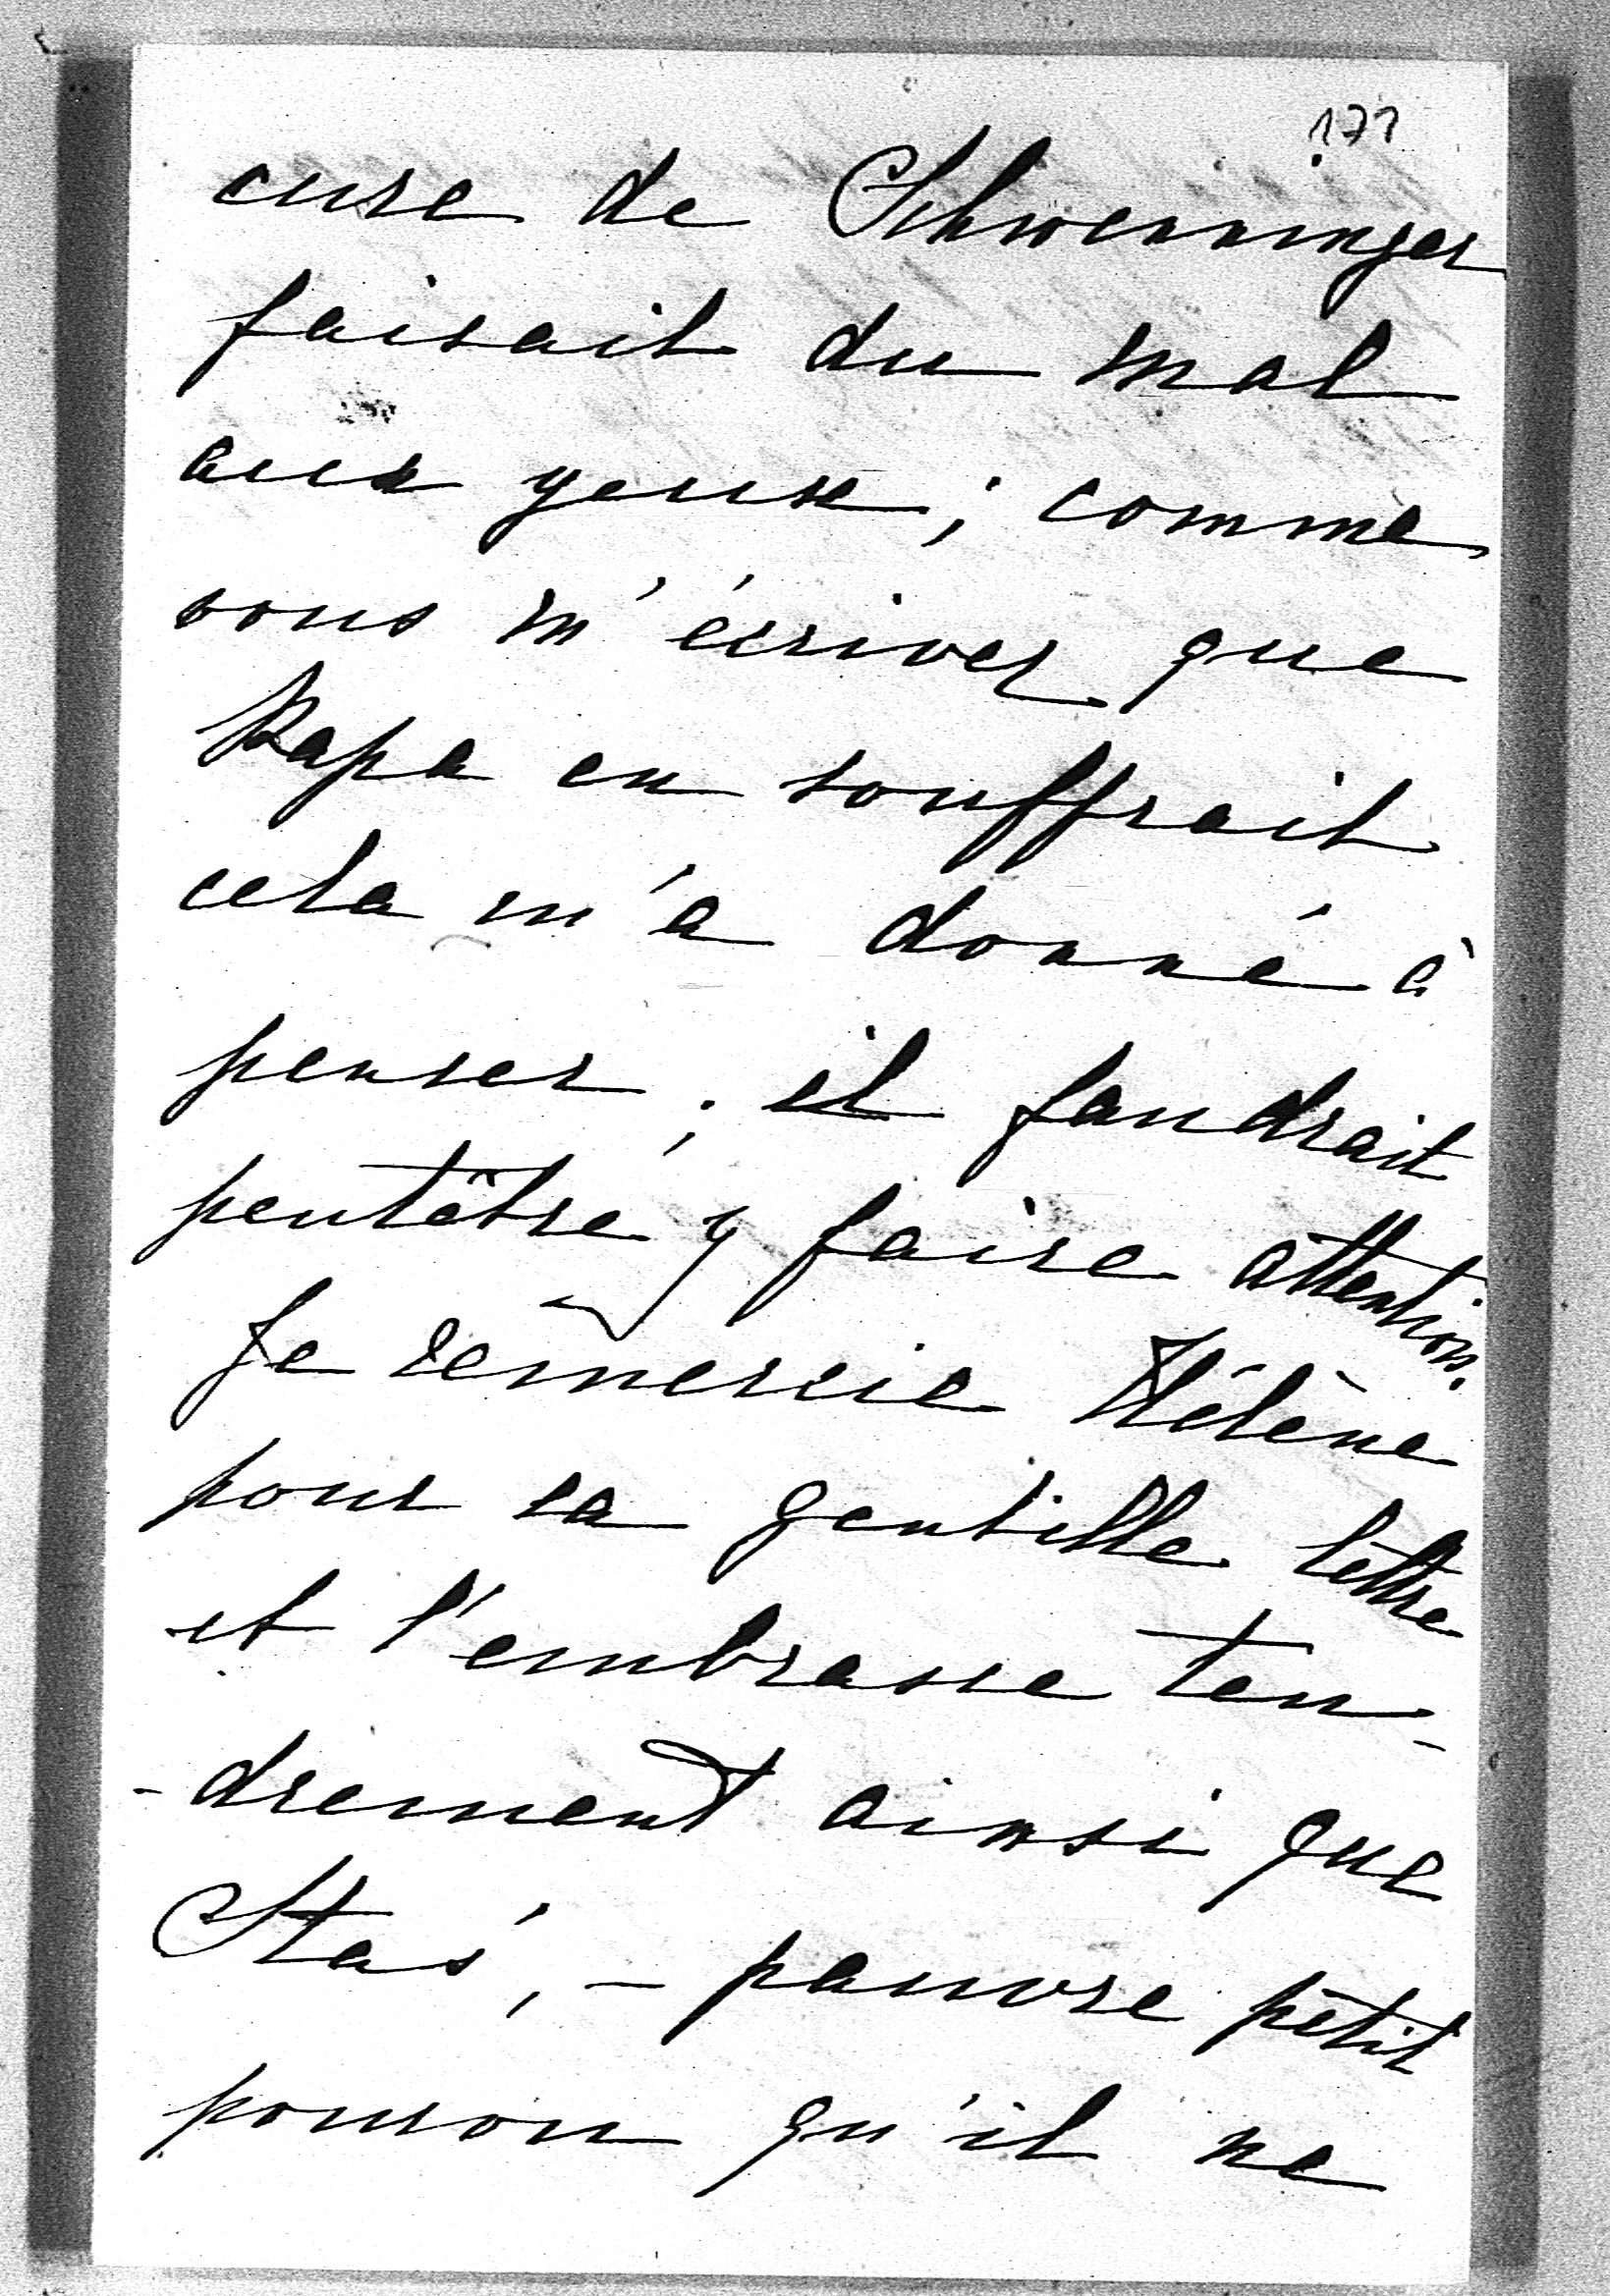 171
cure de Schwenninger
faisait du mal
aux yeux ; comme
vous m'écrivez que
Papa en souffrait
cela m'a donné à
penser ; il faudrait
peutêtre y faire attention.
Je remercie Hélène
pour sa gentille lettre
et l'embrasse ten-
-drement ainsi que
Staś, - pauvre petit
pourvu qu'il ne